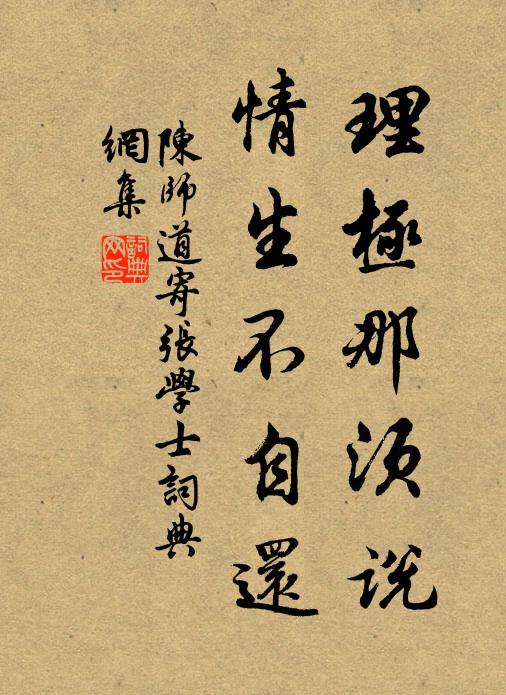 理極那須說
情生不自還
陳師道寄張學士詞典
網集
詞典
网印